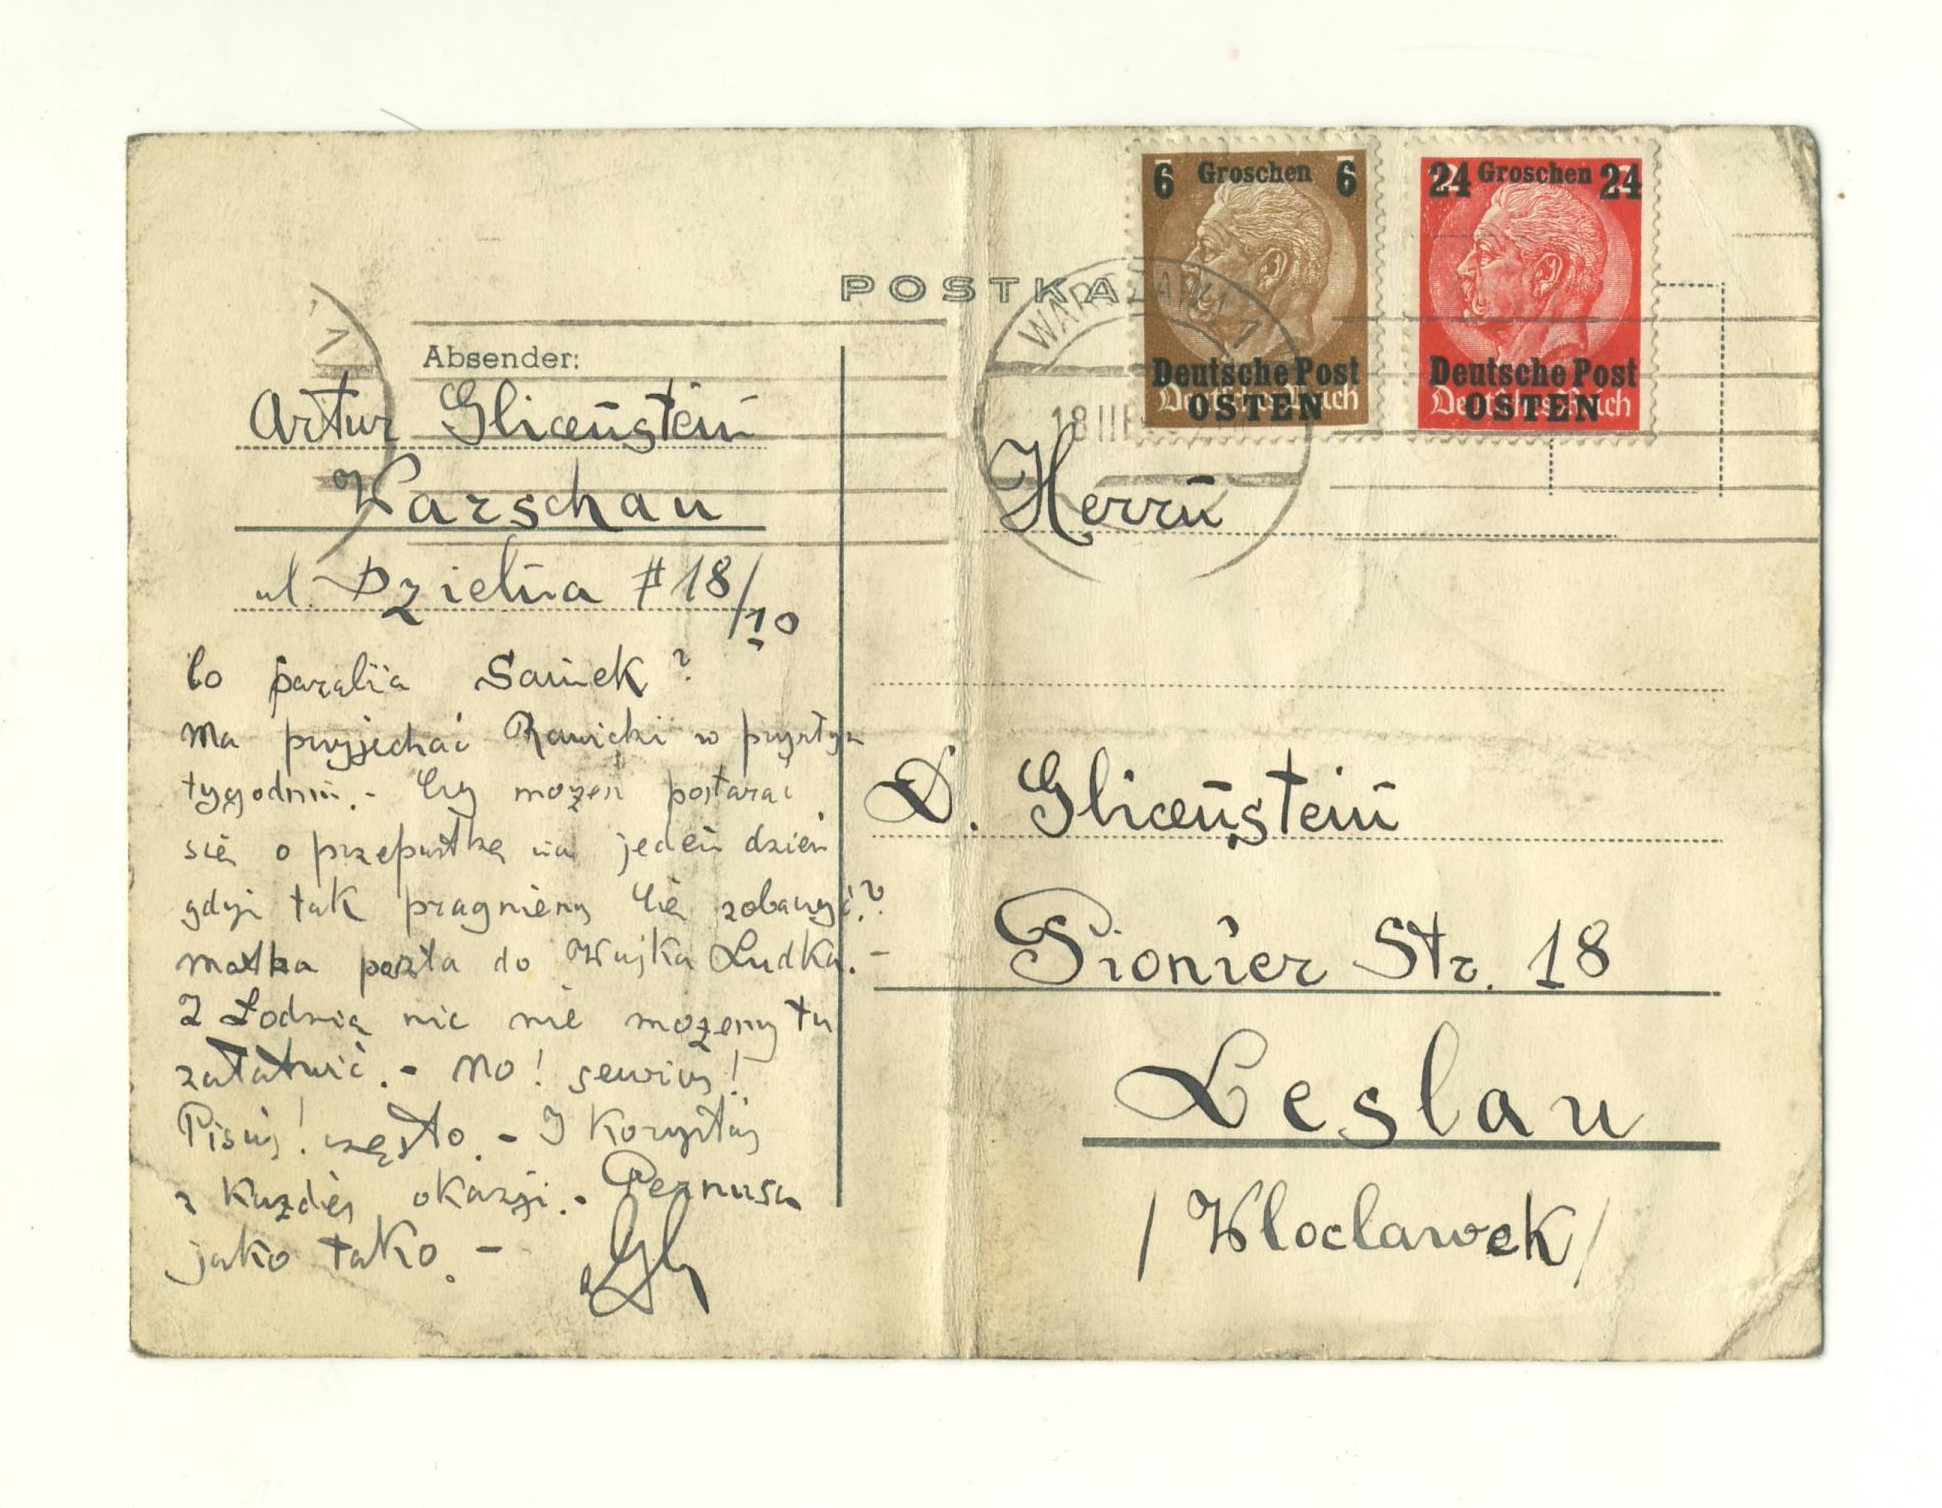 6 Groschen 6
24 Groschen 24
Deutsche Post
OSTEN
Deutsche Post
OSTEN
Deutsches Reich
Deutsches Reich
POSTKA
WARSZAWA 1
18 II
Absender:
Artur Glicenstein
Warschau
ul. Dzielna # 18/10
Co parabia Samek?
Ma przyjechać Rawicki w przyszłym
tygodniu. - Czy możesz postarać
się o przepustkę na jeden dzień
gdyż tak pragniemy Cię zobaczyć.?
matka poszła do Wujka Ludka. -
Z Łodzią nic nie możemy tu
załatwić. - No! serwus!
Pisuj! często. - I Korzystaj
z Każdej okazji. -
jako tako. -
Herrn
D. Glicenstein
Pionier Str. 18
Leslau
/Wloclawek/